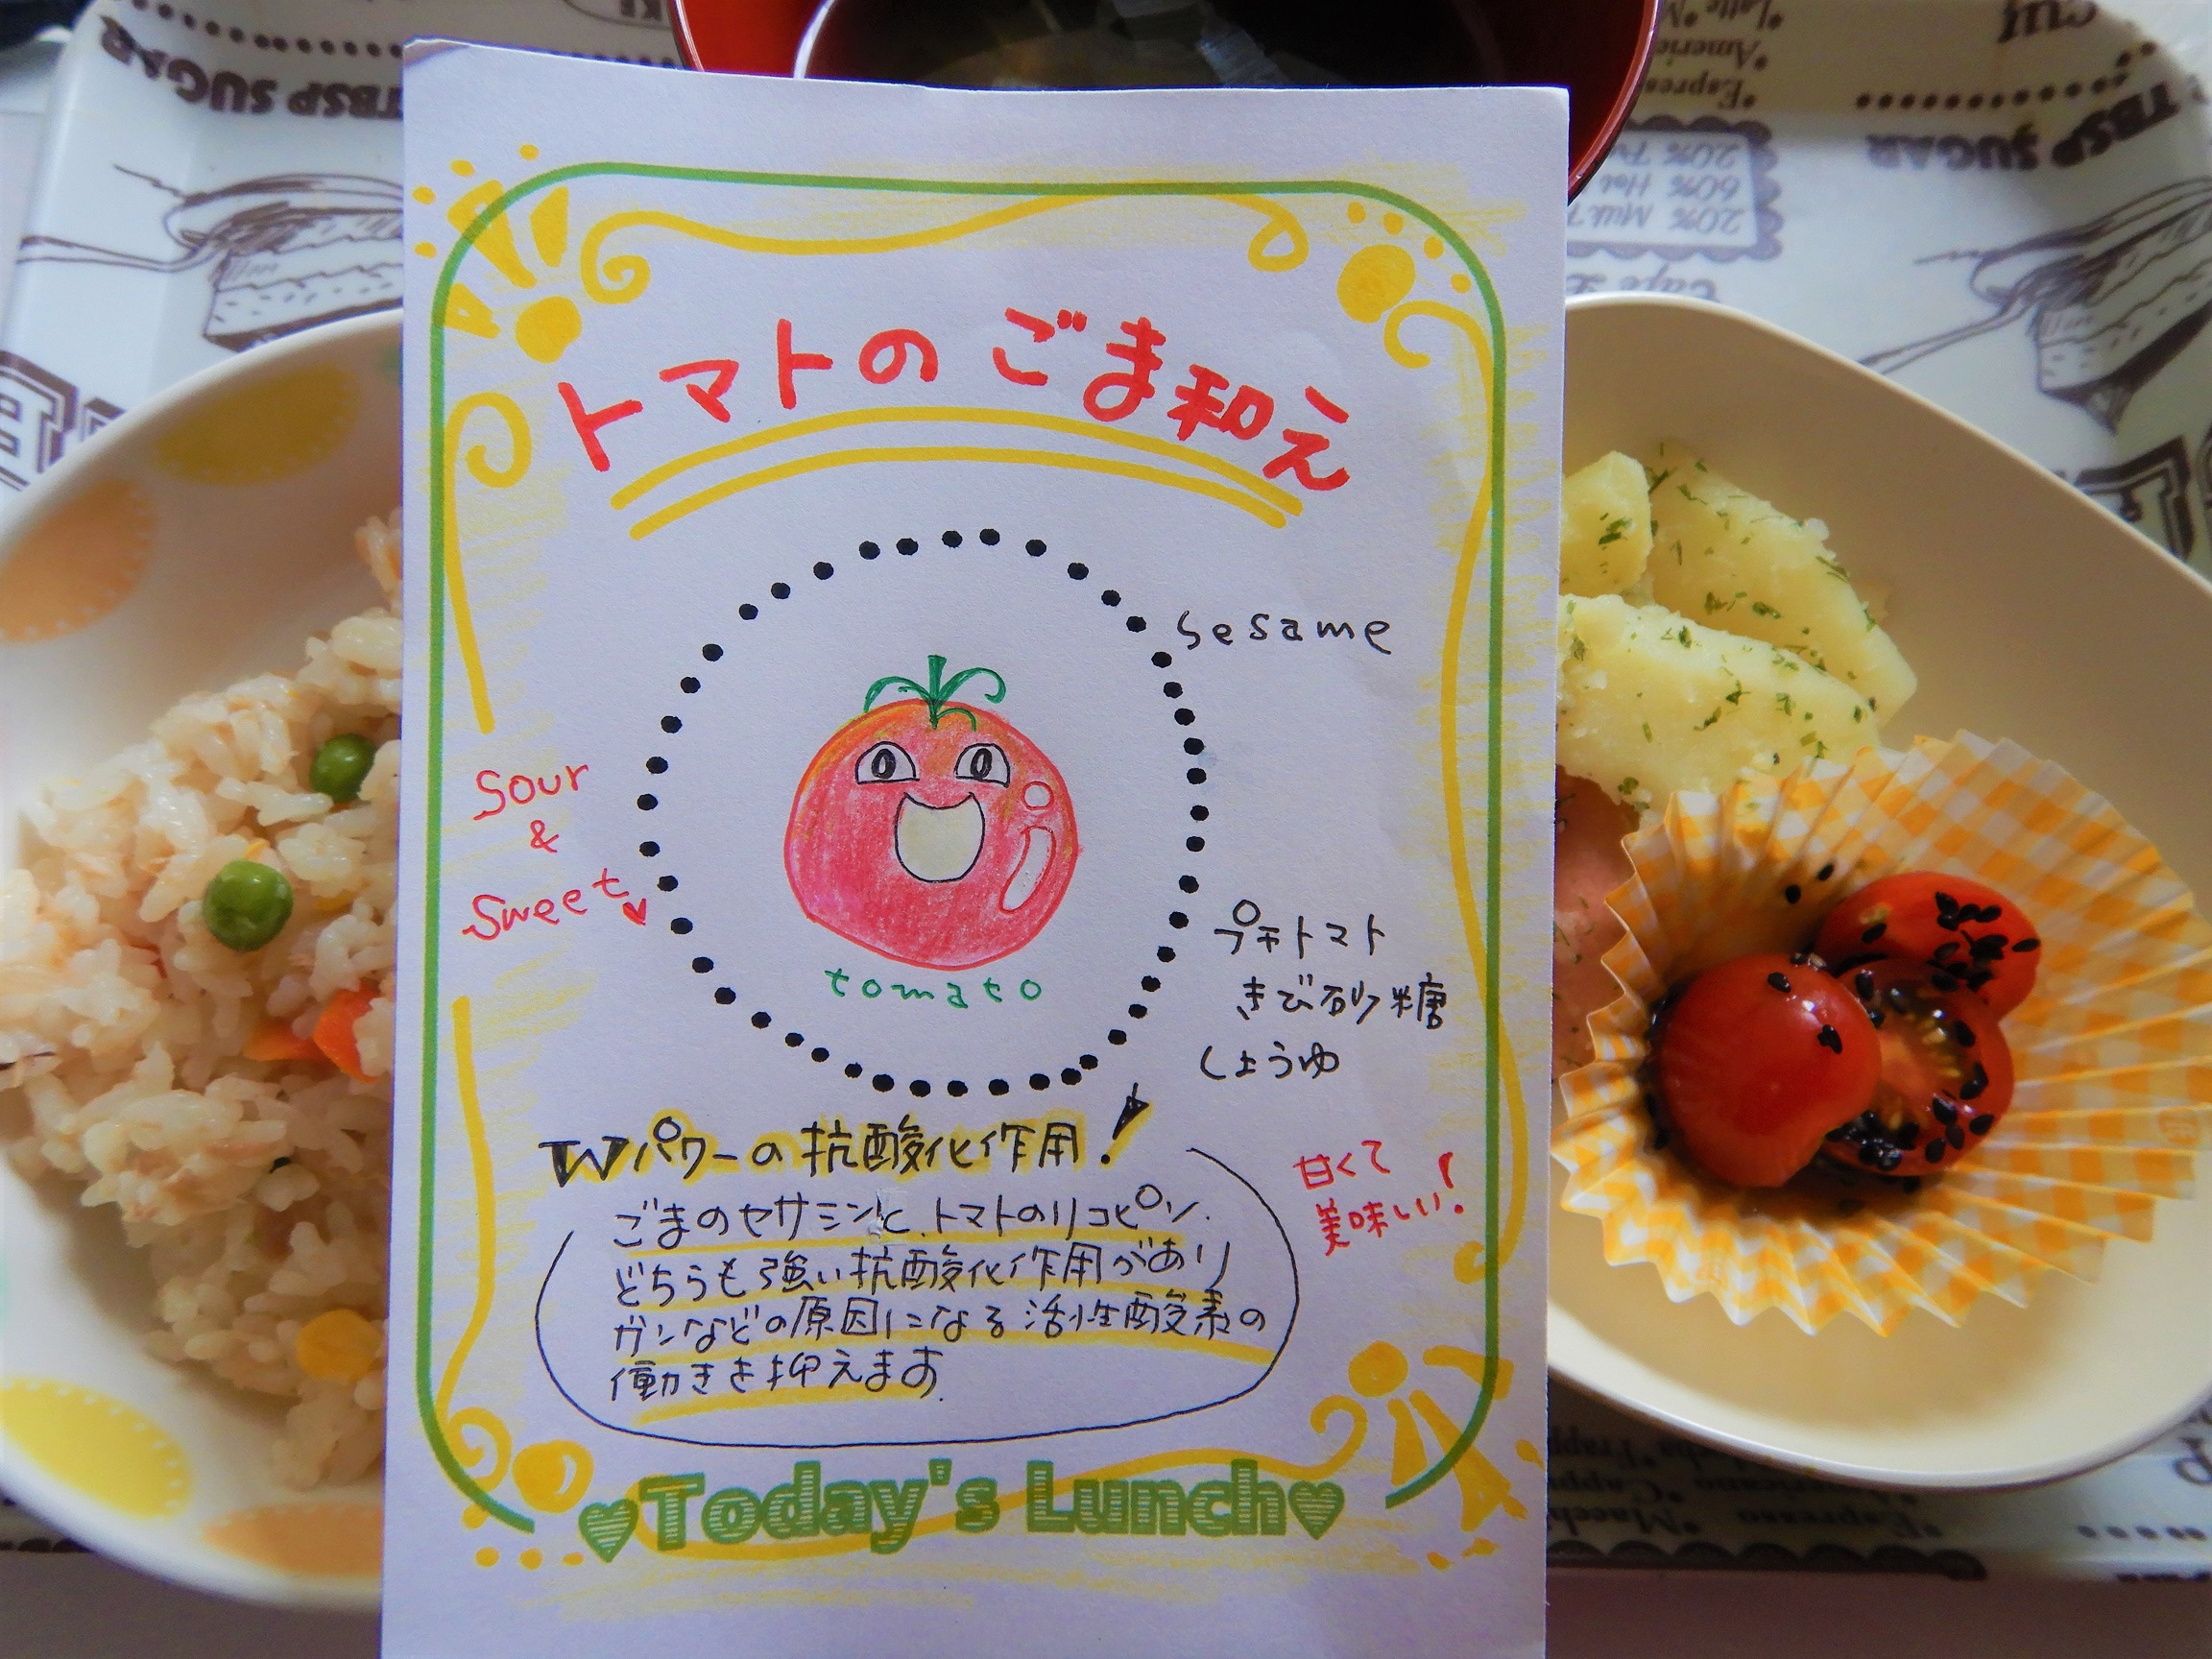 トマトのごま和え
sesame
Sour
&
Sweet
tomato
プチトマト
きび砂糖
しょうゆ
Wパワーの抗酸化作用!
ごまのセサミンと、トマトのリコピン.
どちらも強い抗酸化作用があり
ガンなどの原因になる活性酸素の
働きを抑えます.
甘くて
美味しい!
Today's Lunch
TBSP SUGAR
TBSP SUGAR
TBSP SUGAR
20%
60% Hot
20% Milk
Espresso